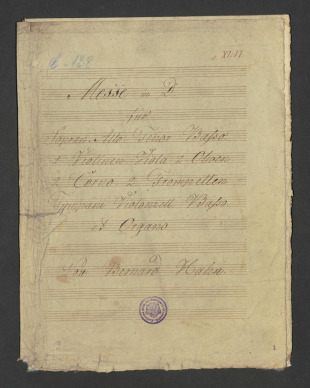 XLII
Messe in D
für
Sopran Alto Tenor Basso
2 Violinen Viola 2 Oboen
2 Corno 2 Trompetten
Tympani Violoncell Basso
et Organo
Von Bernard Hahn.